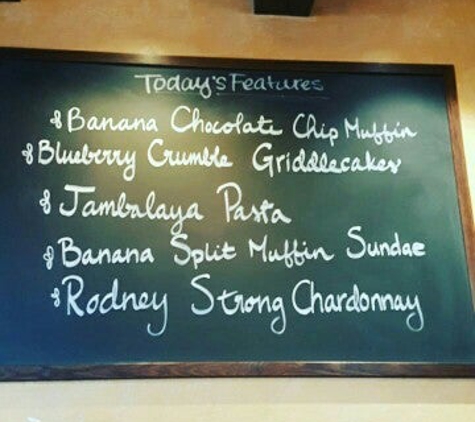 Today's Features
Banana Chocolate Chip Muffin
Blueberry Crumble Griddlecakes
Jambalaya Pasta
Banana Split Muffin Sundae
Rodney Strong Chardonnay